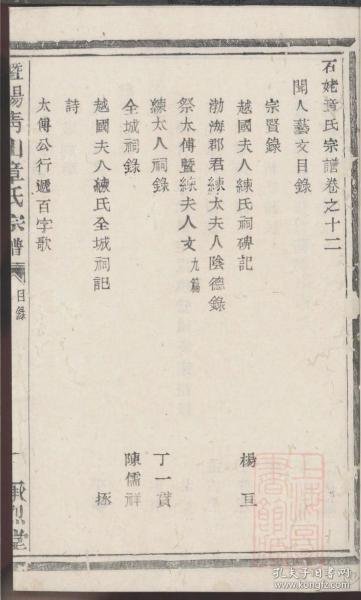 石姥章氏宗譜卷之十二
聞人藝文目錄
宗賢錄
越國夫人練氏祠碑記 楊亘
渤海郡君練太夫人陰德錄
祭太傅暨練夫人文九篇
練太人祠錄 丁一貫
全城祠錄 陳儒祥
越國夫人練氏全城祠記 拯
詩
太傅公行遞百字歌
暨陽青山章氏宗譜
目錄
一
堂
孔夫子旧书网